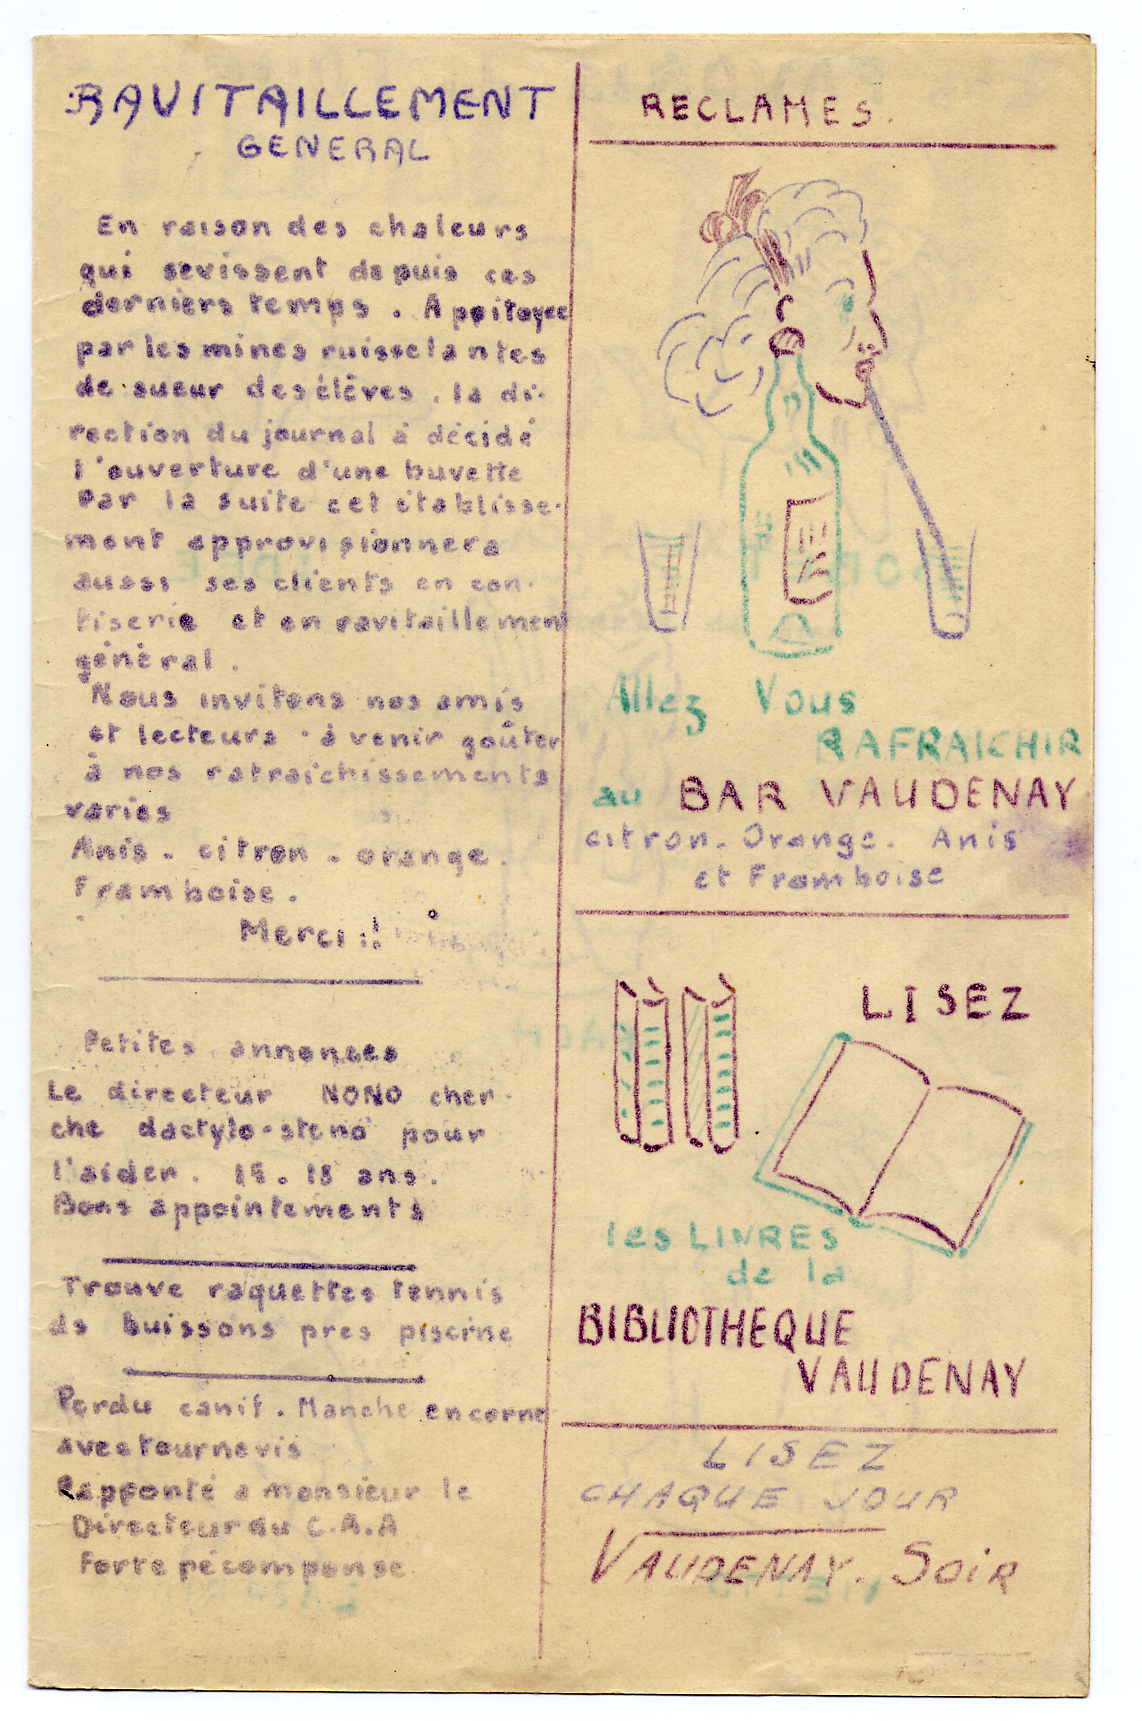 RAVITAILLEMENT
GENERAL
En raison des chaleurs
qui sevissent depuis ces
derniers temps. Appitoyee
par les mines ruisselantes
de sueur des élèves, la di-
rection du journal à décidé
l'ouverture d'une buvette
Par la suite cet établisse-
ment approvisionnera
aussi ses clients en con-
fiserie et en ravitaillement
général.
Nous invitons nos amis
et lecteurs à venir goûter
à nos rafraichissements
varies
Anis - citron - orange.
Framboise.
Merci!!
Petites annonces
Le directeur NONO cher-
che dactylo-steno pour
l'aider. 18 ans.
Bons appointements
Trouve raquettes tennis
ds buissons pres piscine
Perdu canif. Manche en corne
avec tournevis
Rapporté a monsieur le
Directeur du C.A.A
Forte récompense
RECLAMES.
Allez Vous
RAFRAICHIR
au BAR VAUDENAY
citron. Orange. Anis
et Framboise
LISEZ
les LIVRES
de la
BIBLIOTHEQUE
VAUDENAY
LISEZ
CHAQUE JOUR
VAUDENAY. SOIR